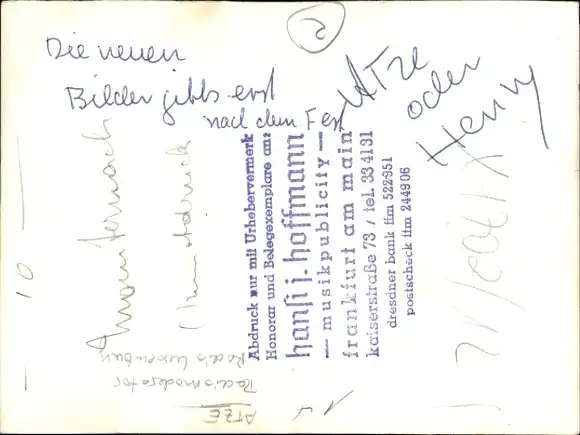 2
Die neuen
Bilder gibts erst
nach dem Fest
Atze
oder
Henry
Abdruck nur mit Urhebervermerk
Honorar und Belegexemplare an:
hansi j. hoffmann
— musikpublicity —
frankfurt am main
kaiserstraße 73 / tel. 33 41 31
dresdner bank ffm 522-951
postscheck ffm 244906
10
ATZE
Radiomoderator
Radio Luxemburg